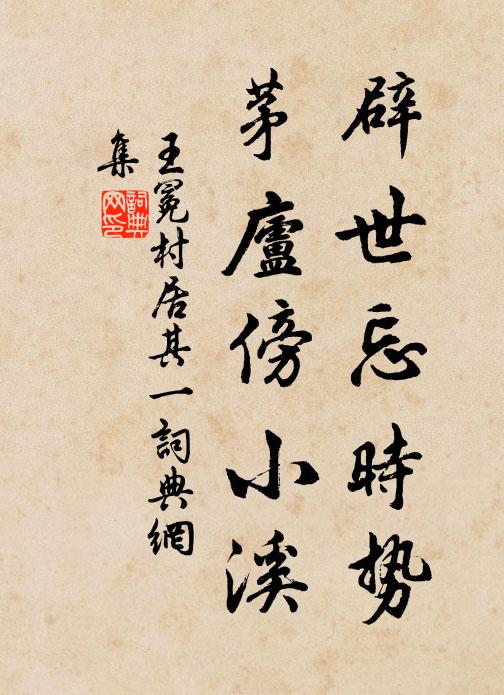 辟世忘時勢
茅廬傍小溪
王冕村居其一詞典網
集
詞典
网印